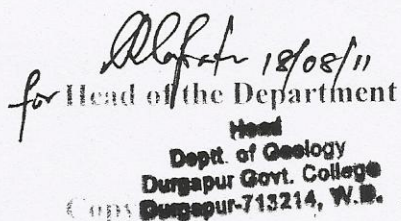 18/08/11
for Head of the Department
Head
Deptt. of Geology
Durgapur Govt. College
Copy Durgapur-713214, W.B.